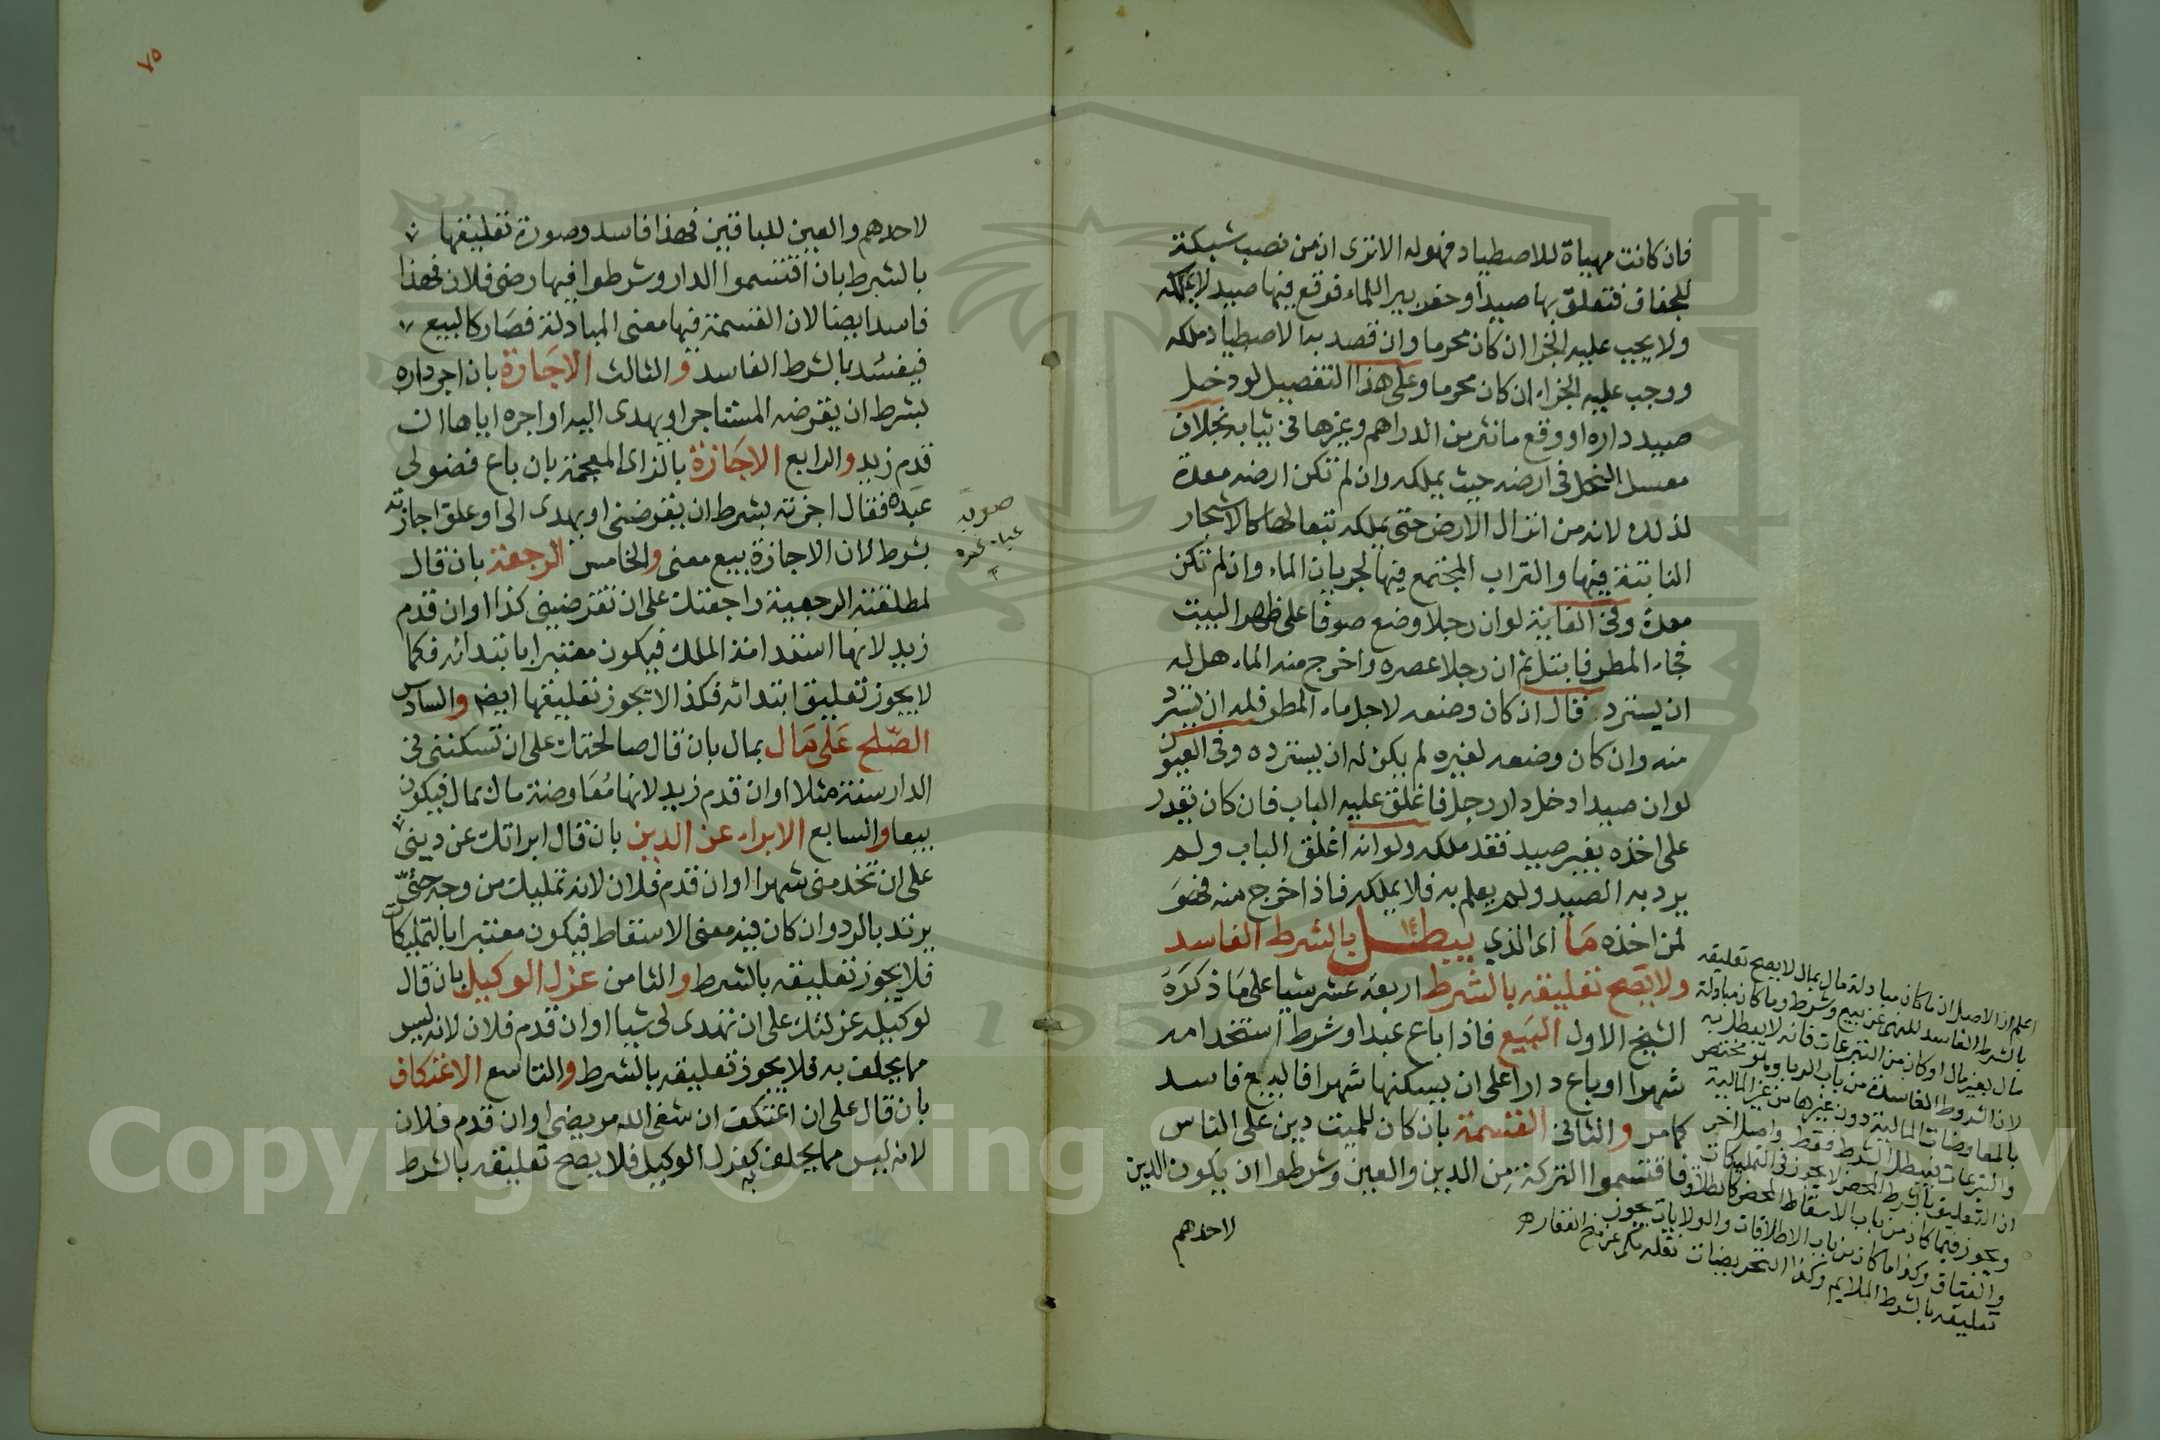 فان كانت مهياة للاصطياد فهو له الا ترى ان من نصب شبكة
للجفاف فتعلق بها صيد او حفر بير الماء فوقع فيها صيد لا يملكه
ولا يجب عليه الجزا ان كان محرما وان قصد بها الاصطياد ملكه
ووجب عليه الجزاء ان كان محرما وعلى هذا التفصيل لو دخل
صيد داره او وقع ما نثر من الدراهم وغيرها في ثيابه بخلاف
معسل النحل في ارضه حيث يملكه وان لم تكن ارضه معدة
لذلك لانه من انزال الارض حتى يملكه تبعا لها كالاشجار
النابتة فيها والتراب المجتمع فيها لجريان الماء وان لم تكن
معدة وفي الغاية لو ان رجلا وضع صوفا على ظهر البيت
فجاء المطر فابتل ثم ان رجلا عصره واخرج منه الماء هل له
ان يسترد قال ان كان وضعه لاجل ماء المطر فله ان يسترد
منه وان كان وضعه لغيره لم يكن له ان يسترده وفي العيون
لو ان صيدا دخل دار رجل فاغلق عليه الباب فان كان يقدر
على اخذه بغير صيد فقد ملكه ولو انه اغلق الباب ولم
يرد به الصيد ولم يعلم به فلا يملكه فاذا خرج منه فهو
لمن اخذه ما اى الذي يبطل بالشرط الفاسد
ولا يصح تعليقه بالشرط اربعة عشر شيا على ما ذكره
الشيخ الاول البيع فاذا باع عبدا وشرط استخدامه
شهرا او باع دارا على ان يسكنها شهرا فالبيع فاسد
كما مر والثاني القسمة بان كان للميت دين على الناس
فاقتسموا التركة من الدين والعين وشرطوا ان يكون الدين
لاحدهم
اعلم ان الاصل ان ما كان مبادلة مال بمال لا يصح تعليقه
بالشرط الفاسد للنهى عن بيع وشرط وما كان مبادلة
مال بغير مال او كان من التبرعات فانه لا يبطل به
لان الشروط الفاسدة من باب الربا وهو مختص
بالمعاوضات المالية دون غيرها من غير المالية
والتبرعات فيبطل الشرط فقط واصل اخر
ان التعليق بالشرط المحض لا يجوز في التمليكات
ويجوز فيما كان من باب الاسقاط المحض كالطلاق
والعتاق وكذا ما كان من باب الاطلاقات والولايات يجوز
تعليقه بالشرط الملايم وكذا التحريضات نقله عن منح الغفار
٧٥
لاحدهم والعين للباقين فهذا فاسد وصورة تعليقها
بالشرط بان اقتسموا الدار وشرطوا فيها رضى فلان فهذا
فاسد ايضا لان القسمة فيها معنى المبادلة فصار كالبيع
فيفسد بالشرط الفاسد والثالث الاجارة بان اجر داره
بشرط ان يقرضه المستاجر او يهدى اليه او اجره اياها ان
قدم زيد والرابع الاجازة بالزاى المعجمة بان باع فضولي
عبده فقال اجزته بشرط ان يقرضني او يهدى الى او علق اجازته
بشرط لان الاجازة بيع معنى والخامس الرجعة بان قال
لمطلقته الرجعية راجعتك على ان تقرضيني كذا او ان قدم
زيد لانها استدامة الملك فيكون معتبرا بابتدائه فكما
لا يجوز تعليق ابتدائه فكذا لا يجوز تعليقها ايضا والسادس
الصلح على مال بمال بان قال صالحتك على ان تسكنني في
الدار سنة مثلا او ان قدم زيد لانها معاوضة مال بمال فيكون
بيعا والسابع الابراء عن الدين بان قال ابراتك عن ديني
على ان تخدمني شهرا او ان قدم فلان لانه تمليك من وجه حتى
يرتد بالرد وان كان فيه معنى الاسقاط فيكون معتبرا بالتمليكات
فلا يجوز تعليقه بالشرط والثامن عزل الوكيل بان قال
لوكيله عزلتك على ان تهدى لى شيا او ان قدم فلان لانه ليس
مما يحلف به فلا يجوز تعليقه بالشرط والتاسع الاعتكاف
بان قال على ان اعتكف ان شفى الله مريضي او ان قدم فلان
لانه ليس مما يحلف به كعزل الوكيل فلا يصح تعليقه بالشرط
صوابه
عبد غيره
Copyright © King Saud University
1957